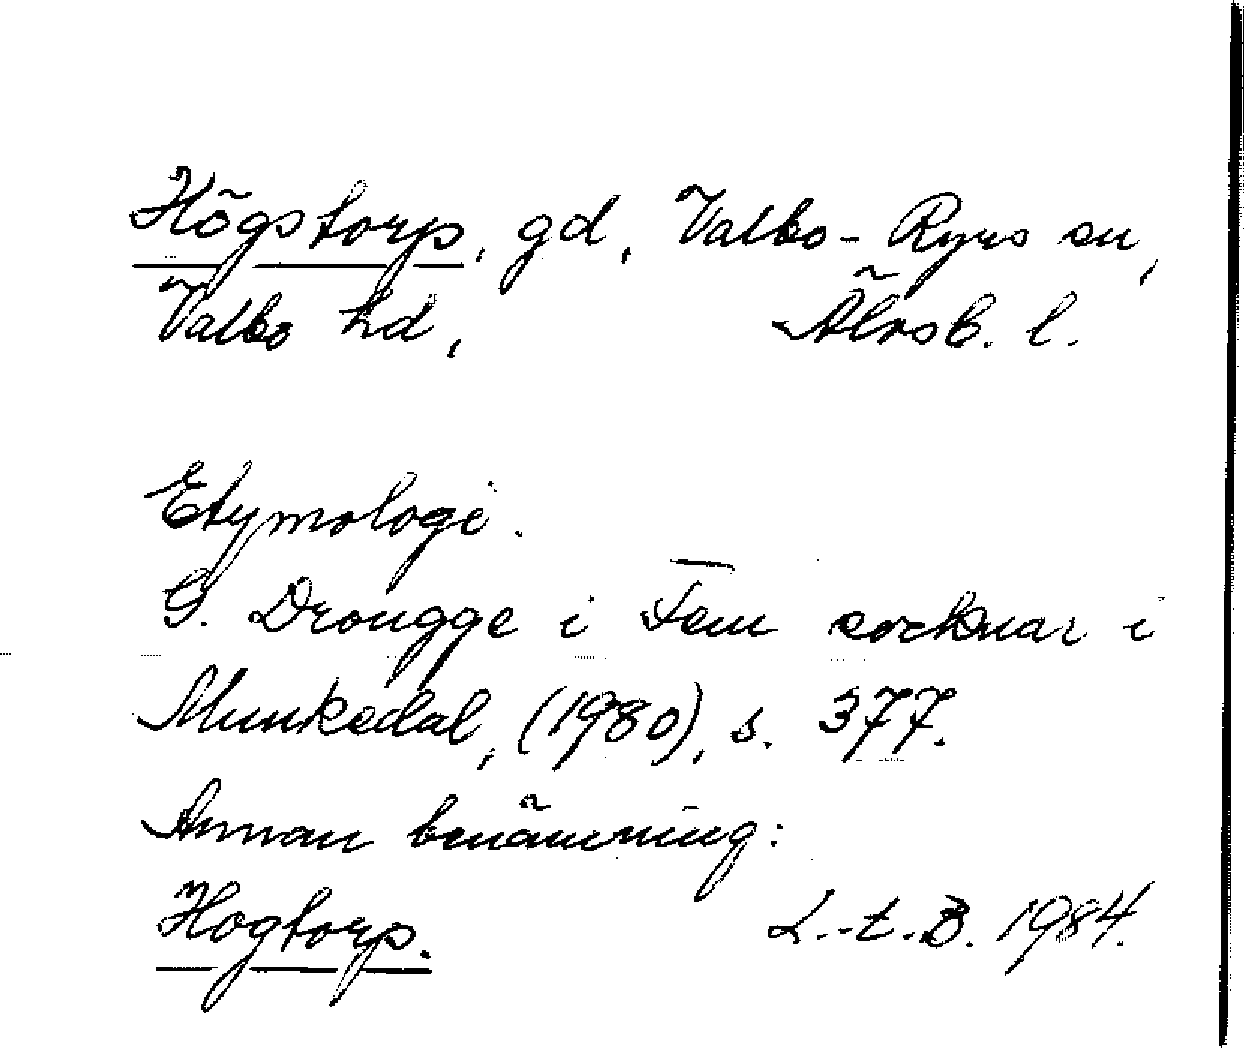 Högstorp, gd, Valbo-Ryrs sn,
Valbo hd, Älvsb. l.
Etymologi.
G. Drougge i Fem socknar i
Munkedal, (1980), s. 377.
Annan benämning:
Hogtorp. L.-t. B. 1984.